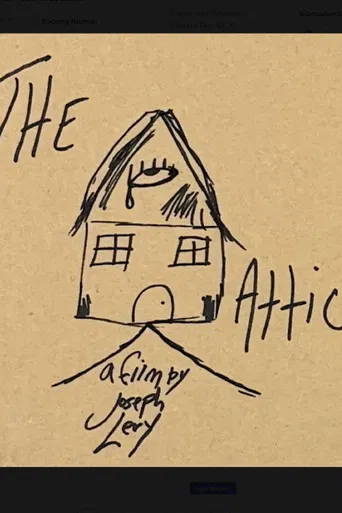 THE
Attic
a film by
Joseph